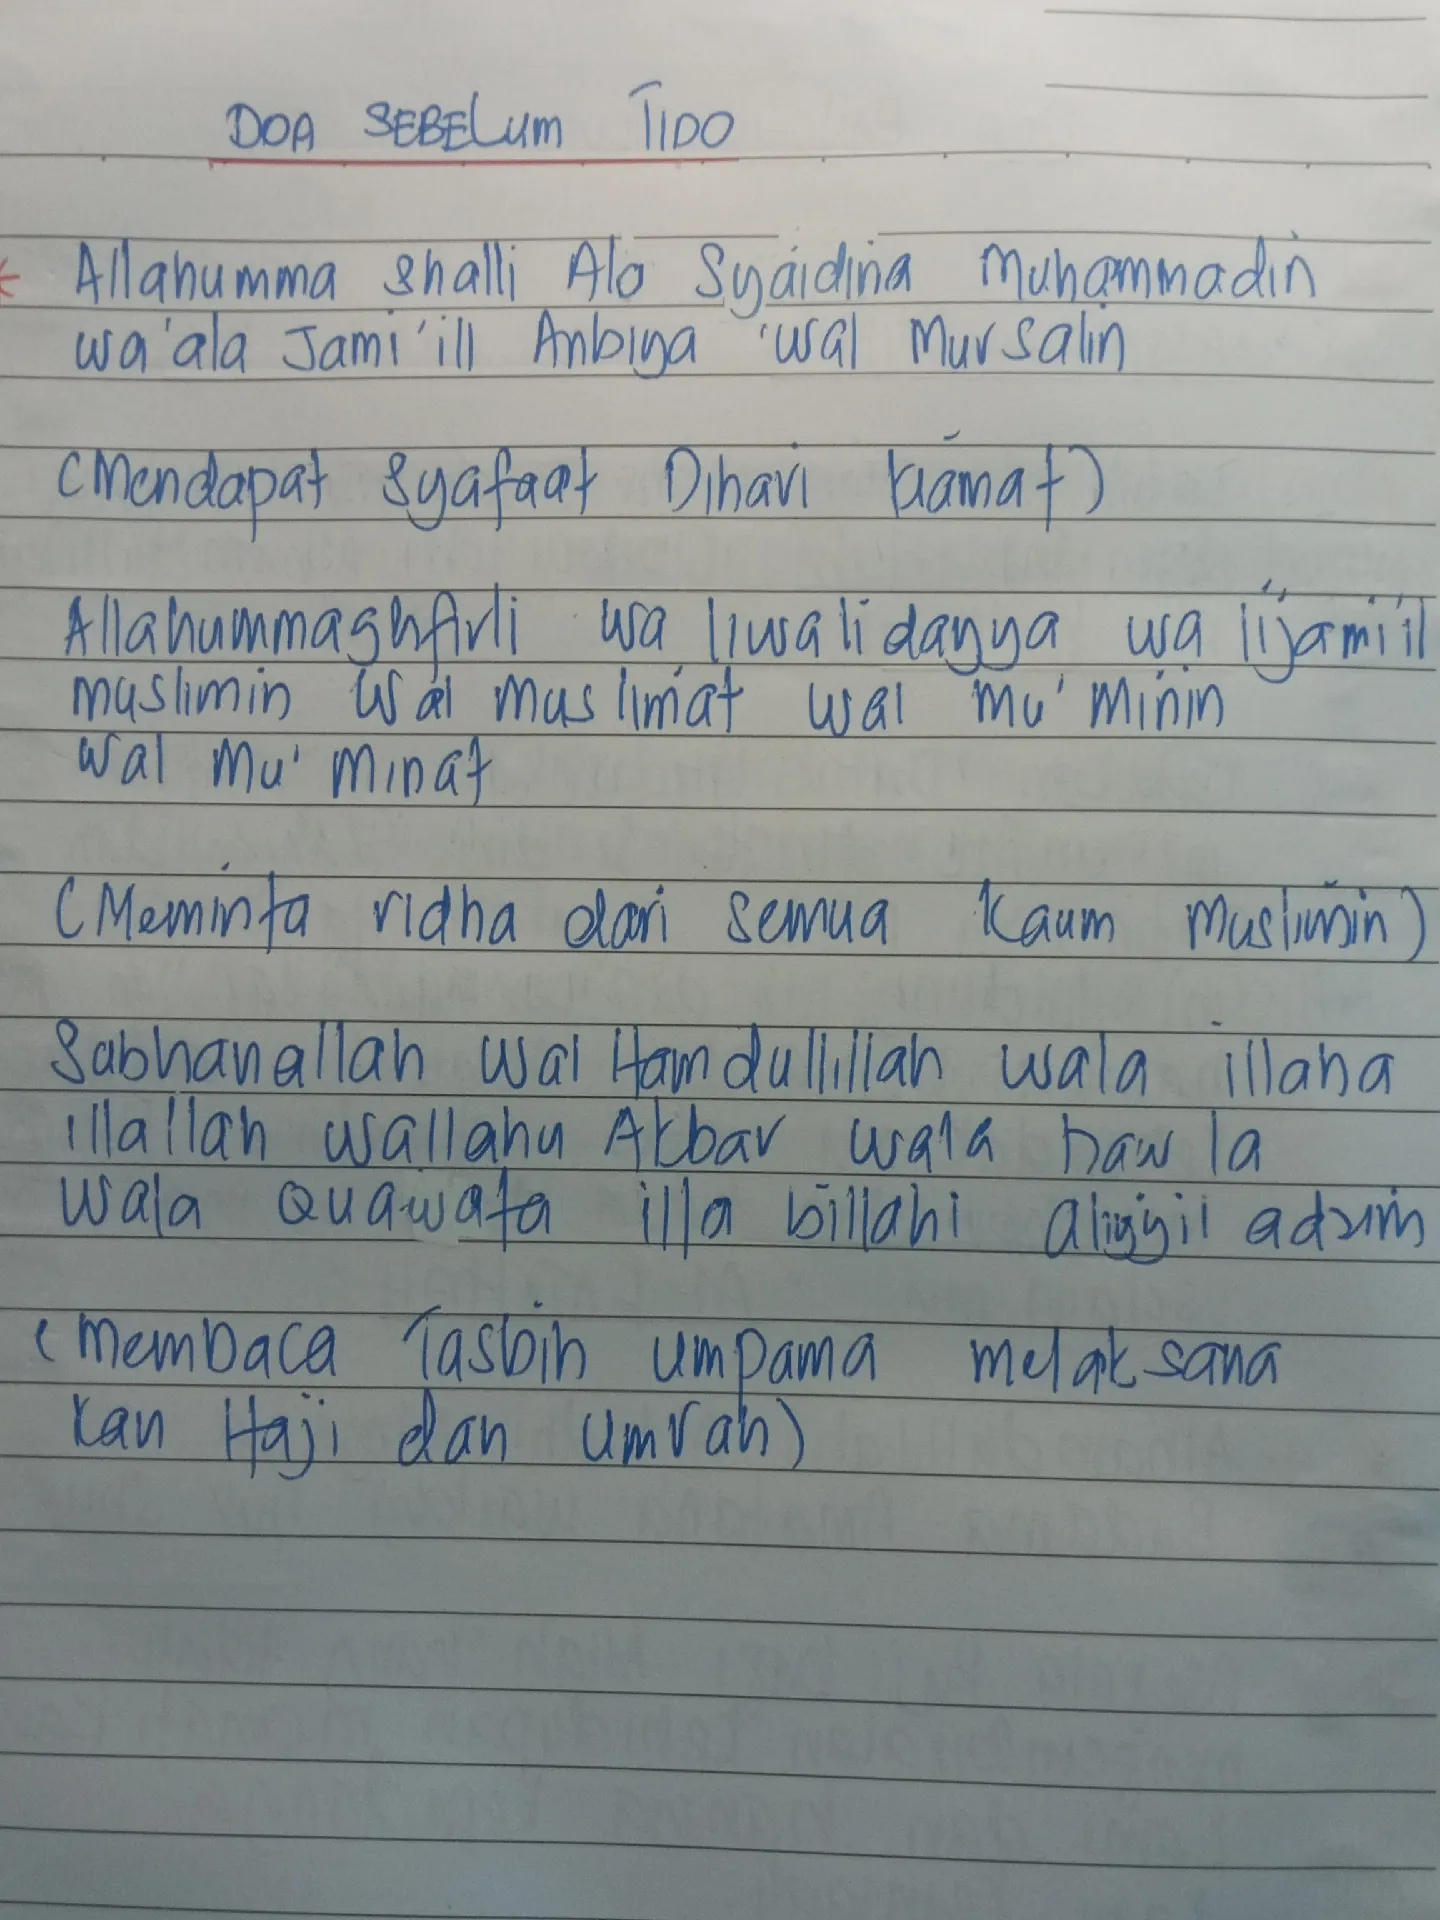 DOA SEBELUM TIDO
Allahumma shalli Ala Syaidina Muhammadin
wa'ala Jami'ill Anbiya 'wal Mursalin
(Mendapat Syafaat Dihari kiamat)
Allahummaghfirli wa liwalidayya wa lijami'il
muslimin wal muslimat wal mu'minin
wal mu'minat
(Meminta ridha dari semua kaum muslimin)
Subhanallah wal Hamdullillah wala illaha
illallah wallahu Akbar wala hawla
wala Quawata illa billahi aliyyil adzim
(membaca Tasbih umpama melaksana
kan Haji dan umrah)